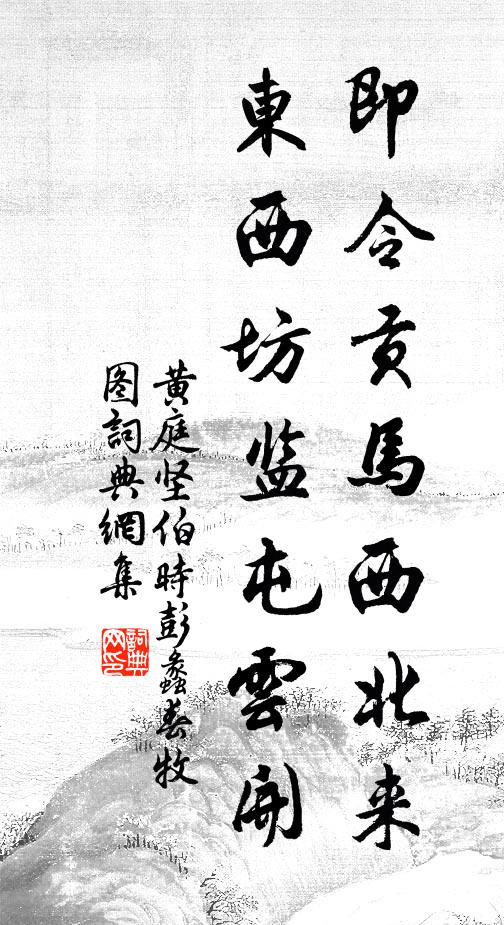 即今貢馬西北来
東西坊监屯雲開
黄庭坚伯時彭蠡春牧
图詞典網集
詞典网印